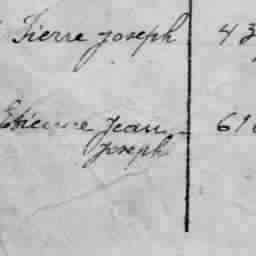 Pierre Joseph 43
Etienne Jean 61
Joseph